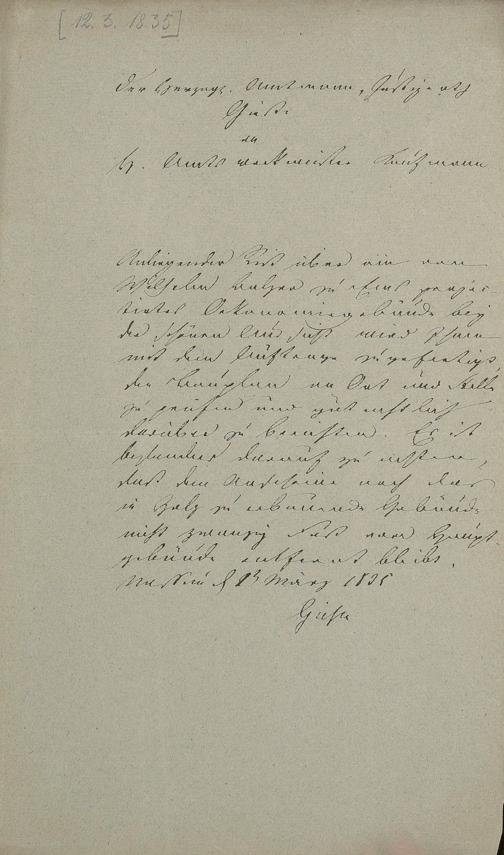 [12. 3. 1835]
Der Herzogl. Amtmann, Justizrath
Giesse
an
H. Amtswerkmeister Kaufmann
Anliegender Riß über ein von
Wilhelm Balzer zu Ems projec-
tirtes Oekonomiegebäude bey
der schönen Aussicht wird Ihnen
mit dem Auftrage zugefertigt,
den Bauplan an Ort und Stelle
zu prüfen und gutachtlich
darüber zu berichten. Es ist
besonders darauf zu achten,
daß dem Anscheine nach das
in Holz zu erbauende Gebäude
nicht zwanzig Fuß vom Haupt-
gebäude entfernt bleibt.
Nassau d. 12 März 1835
Giesse